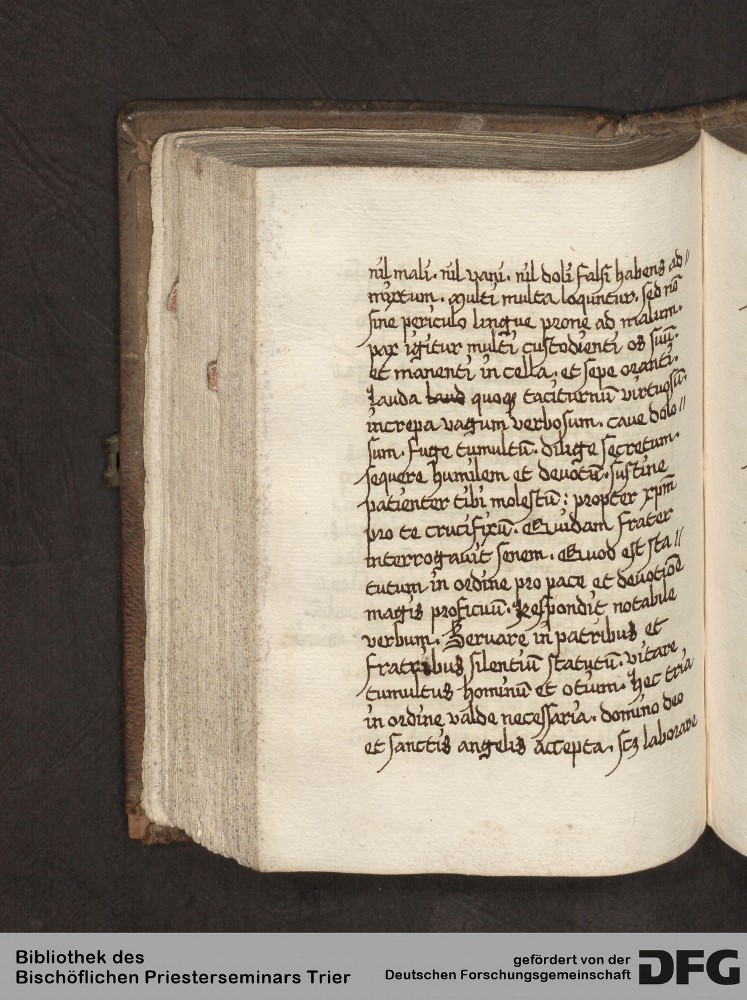 nil mali. nil vani. nil doli falsi habens ad//
mixtum. Multi multa loquntur. sed nō
sine periculo lingue prone ad malum.
pax igitur multi custodienti os suū.
et manenti in cella. et sepe oranti.
Lauda laud quoqꝫ taciturnū virtuosū.
increpa vagum verbosum. caue dolo//
sum. fuge tumultū. dilige secretum.
sequere humilem et deuotū. sustine
patienter tibi molestū: propter xp̄m
pro te crucifixū. Quidam frater
interrogauit senem. Quod est sta//
tutum in ordine pro pace et deuotiōe
magis proficuū. Respondit notabile
verbum. Seruare in patribus et
fratribus silentiū statutū. vitare
tumultus hominū et otium. Hec tria
in ordine valde necessaria. domino deo
et sanctis angelis accepta. scꝫ laborare
Bibliothek des
Bischöflichen Priesterseminars Trier
gefördert von der
Deutschen Forschungsgemeinschaft
DFG